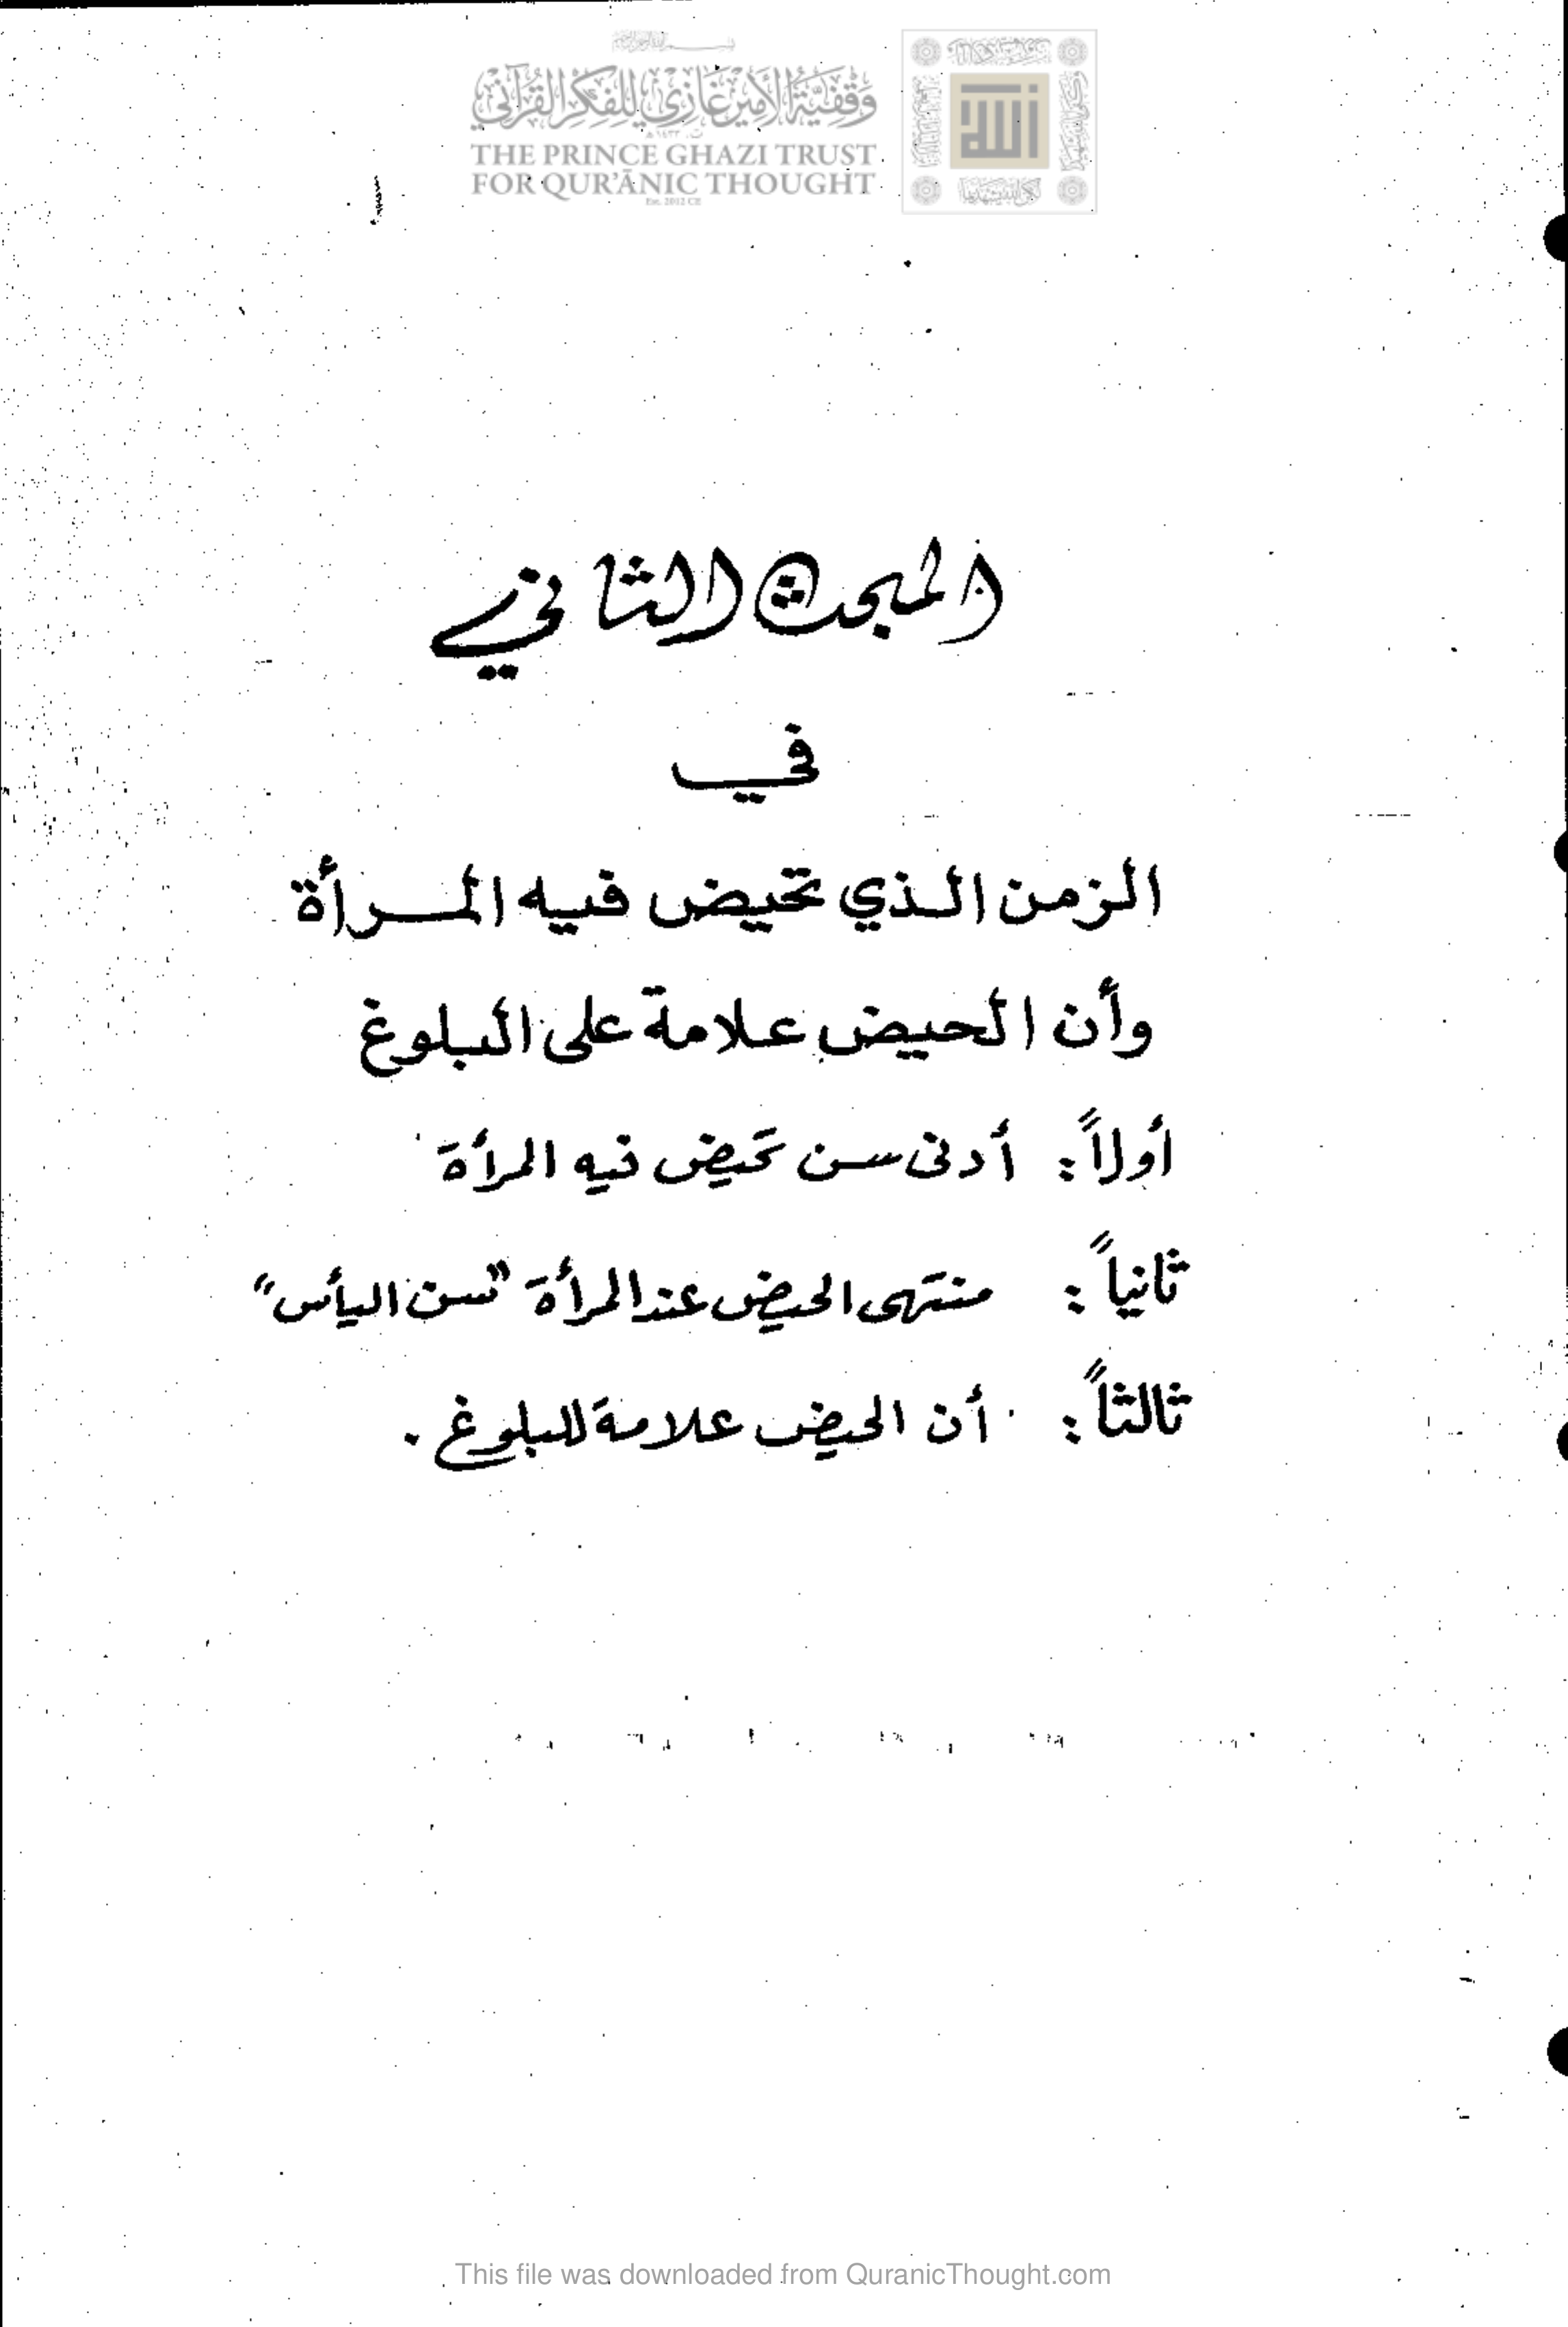 وقفية الأمير غازي للفكر القرآني
THE PRINCE GHAZI TRUST
FOR QUR'ĀNIC THOUGHT
Est. 2012 CE
الله
المبحث الثاني
في
الزمن الذي تحيض فيه المرأة
وأن الحيض علامة على البلوغ
أولاً: أدنى سن تحيض فيه المرأة
ثانياً: منتهى الحيض عند المرأة "سن اليأس"
ثالثاً: أن الحيض علامة للبلوغ.
This file was downloaded from QuranicThought.com